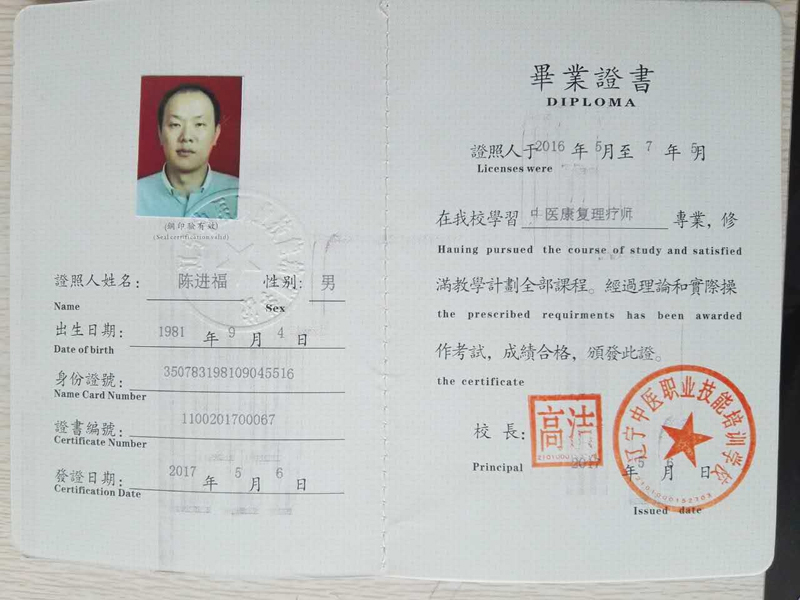 (鋼印驗有效)
(Seal certification valid)
證照人姓名: 陈进福 性别: 男
Name Sex
出生日期: 1981 年 9 月 4 日
Date of birth
身份證號: 350783198109045516
Name Card Number
證書編號: 1100201700067
Certificate Number
發證日期: 2017 年 5 月 6 日
Certification Date
畢業證書
DIPLOMA
證照人于2016 年 5月至 7 年 5月
Licenses were
在我校學習 中医康复理疗师 專業,修
Hauing pursued the course of study and satisfied
滿教學計劃全部課程。經過理論和實際操
the prescribed requirments has been awarded
作考試,成績合格,頒發此證。
the certificate
校長: 高洁
Principal
2017 年 5 月 6 日
Issued date
辽宁中医职业技能培训学校